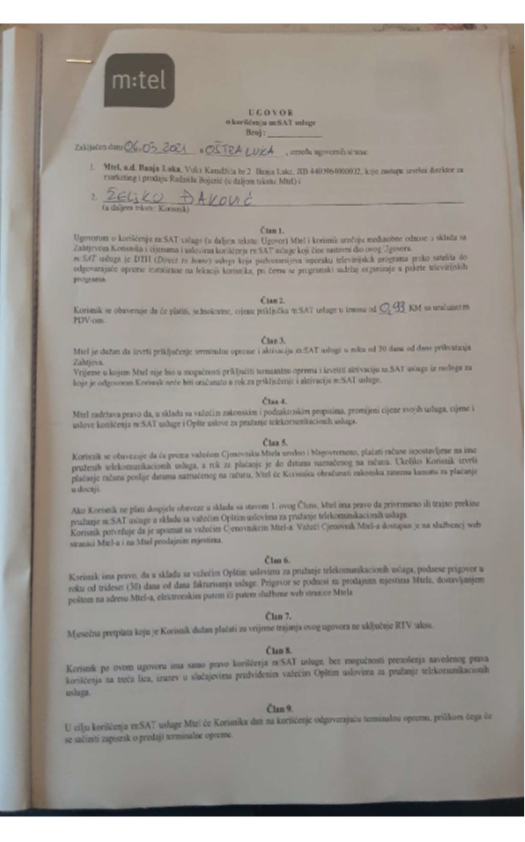 m:tel
UGOVOR
o korišćenju m:SAT usluge
Broj:
Zaključen dana 06.03.2021 u OŠTRA LUKA, između ugovornih strana:
1. Mtel, a.d. Banja Luka, Vuka Karadžića br.2 Banja Luka, JIB 4400964000002, koje zastupa izvršni direktor za
marketing i prodaju (u daljem tekstu: Mtel) i
2. ŽELJKO ĐAKOVIĆ
(u daljem tekstu: Korisnik)
Član 1.
Ugovorom o korišćenju m:SAT usluge (u daljem tekstu: Ugovor) Mtel i korisnik uređuju međusobne odnose u skladu sa
Zahtjevom Korisnika i cijenama i uslovima korišćenja m:SAT usluge koji čine sastavni dio ovog Ugovora.
m:SAT usluga je DTH (Direct to home) usluga koja podrazumijeva isporuku televizijskih programa preko satelita do
odgovarajuće opreme instalirane na lokaciji korisnika, pri čemu se programski sadržaj organizuje u pakete televizijskih
programa.
Član 2.
Korisnik se obavezuje da će platiti, jednokratno, cijenu priključka m:SAT usluge u iznosu od 0,93 KM sa uračunatim
PDV-om.
Član 3.
Mtel je dužan da izvrši priključenje terminalne opreme i aktivaciju m:SAT usluge u roku od 30 dana od dana prihvatanja
Zahtjeva.
Vrijeme u kojem Mtel nije bio u mogućnosti priključiti terminalnu opremu i izvršiti aktivaciju m:SAT usluge iz razloga za
koje je odgovoran Korisnik neće biti uračunato u rok za priključenje i aktivaciju m:SAT usluge.
Član 4.
Mtel zadržava pravo da, u skladu sa važećim zakonskim i podzakonskim propisima, promijeni cijene svojih usluga, cijene i
uslove korišćenja m:SAT usluge i Opšte uslove za pružanje telekomunikacionih usluga.
Član 5.
Korisnik se obavezuje da će prema važećem Cjenovniku Mtela uredno i blagovremeno, plaćati račune ispostavljene na ime
pruženih telekomunikacionih usluga, a rok za plaćanje je do datuma naznačenog na računu. Ukoliko Korisnik izvrši
plaćanje računa poslije datuma naznačenog na računu, Mtel će Korisniku obračunati zakonsku zateznu kamatu za plaćanje
u docnji.
Ako Korisnik ne plati dospjele obaveze u skladu sa stavom 1. ovog Člana, Mtel ima pravo da privremeno ili trajno prekine
pružanje m:SAT usluge u skladu sa važećim Opštim uslovima za pružanje telekomunikacionih usluga.
Korisnik potvrđuje da je upoznat sa važećim Cjenovnikom Mtel-a. Važeći Cjenovnik Mtel-a dostupan je na službenoj web
stranici Mtel-a i na Mtel prodajnim mjestima.
Član 6.
Korisnik ima pravo, da u skladu sa važećim Opštim uslovima za pružanje telekomunikacionih usluga, podnese prigovor u
roku od trideset (30) dana od dana fakturisanja usluge. Prigovor se podnosi na prodajnim mjestima Mtela, dostavljanjem
poštom na adresu Mtel-a, elektronskim putem ili putem službene web stranice Mtela
Član 7.
Mjesečna pretplata koju je Korisnik dužan plaćati za vrijeme trajanja ovog ugovora ne uključuje RTV taksu.
Član 8.
Korisnik po ovom ugovoru ima samo pravo korišćenja m:SAT usluge, bez mogućnosti prenošenja navedenog prava
korišćenja na treća lica, izuzev u slučajevima predviđenim važećim Opštim uslovima za pružanje telekomunikacionih
usluga.
Član 9.
U cilju korišćenja m:SAT usluge Mtel će Korisniku dati na korišćenje odgovarajuću terminalnu opremu, prilikom čega će
se sačiniti zapisnik o predaji terminalne opreme.